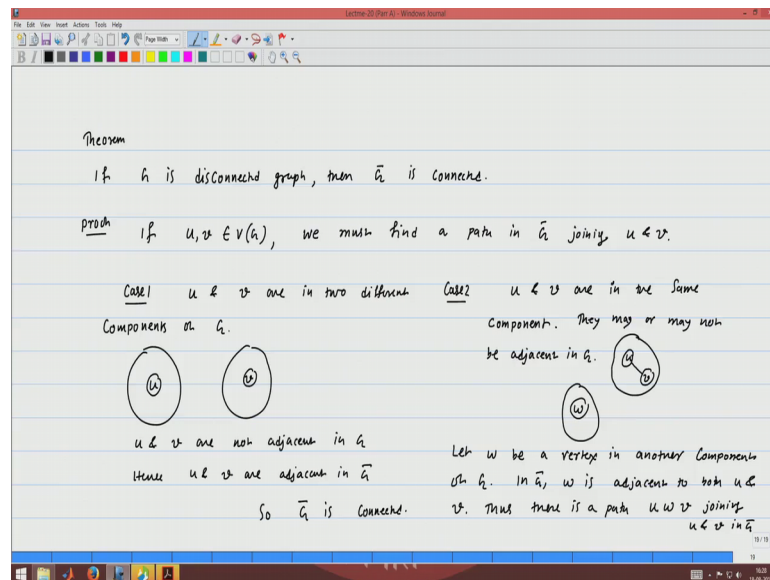 Lecture-20 (Part A) - Windows Journal
File Edit View Insert Actions Tools Help
Page Width
Theorem
If G is disconnected graph, then G̅ is connected.
proof If u, v ∈ V(G), we must find a path in G̅ joining u & v.
Case1 u & v are in two different
Components of G.
u
v
u & v are not adjacent in G
Hence u & v are adjacent in G̅
So G̅ is connected.
Case2 u & v are in the same
Component. They may or may not
be adjacent in G.
u
v
w
Let w be a vertex in another Component
of G. In G̅, w is adjacent to both u &
v. Thus there is a path u w v joining
u & v in G̅
19 / 19
19
16:28